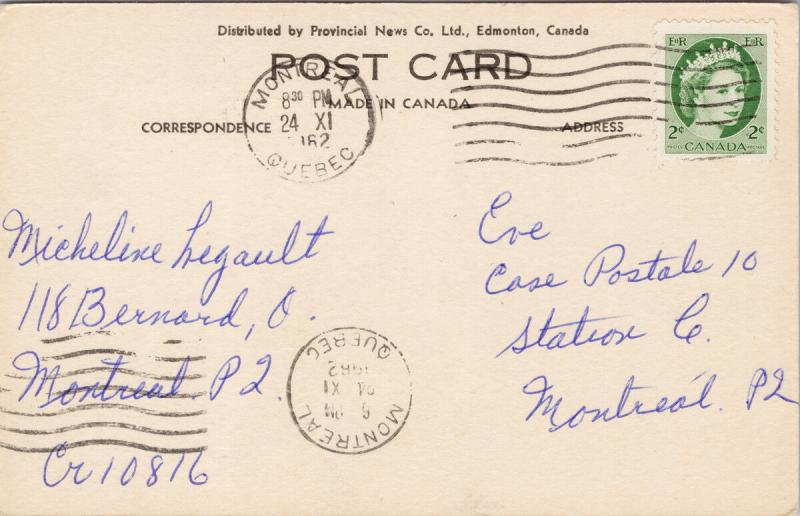 Distributed by Provincial News Co. Ltd., Edmonton, Canada
POST CARD
MADE IN CANADA
CORRESPONDENCE
ADDRESS
MONTREAL
8³⁰ PM
24 XI
1962
QUEBEC
EⅡR EⅡR
2¢ 2¢
POSTES CANADA POSTAGE
Micheline Legault
118 Bernard, O.
Montreal. P2.
Cr 10816
Eve
Case Postale 10
Station C.
Montreál. P2
MONTREAL
9 PM
24 XI
1962
QUEBEC